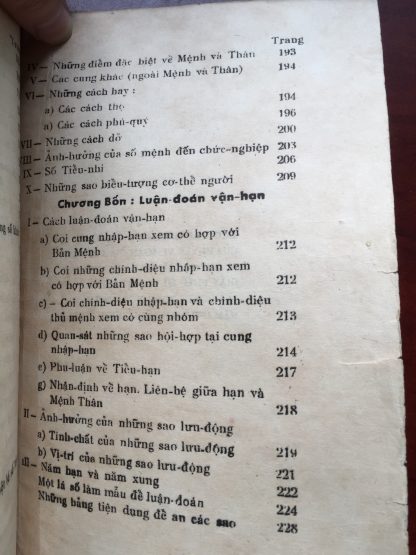 Trang
IV — Những điểm đặc biệt về Mệnh và Thân 193
V — Các cung khác (ngoài Mệnh và Thân) 194
VI — Những cách hay :
a) Các cách thọ 194
a) Các cách phú-quý 196
VII — Những cách dở 200
VIII — Ảnh-hưởng của số mệnh đến chức-nghiệp 203
IX — Số Tiểu-nhi 206
X — Những sao biểu-tượng cơ-thể người 209
Chương Bốn : Luận-đoán vận-hạn
I — Cách luận-đoán vận-hạn
a) Coi cung nhập-hạn xem có hợp với
Bản Mệnh 212
b) Coi những chính-diệu nhập-hạn xem
có hợp với Bản Mệnh 212
c) — Coi chính-diệu nhập-hạn và chính-diệu
thủ mệnh xem có cùng nhóm 213
d) Quan-sát những sao hội-hợp tại cung
nhập-hạn 214
e) Phụ-luận về Tiểu-hạn 217
g) Nhận-định về hạn. Liên-hệ giữa hạn và
Mệnh Thân 218
II — Ảnh-hưởng của những sao lưu-động
a) Tính-chất của những sao lưu-động 219
b) Vị-trí của những sao lưu-động 221
III — Năm hạn và năm xung 222
Một lá số làm mẫu để luận-đoán 224
Những bảng tiện dụng để an các sao 228